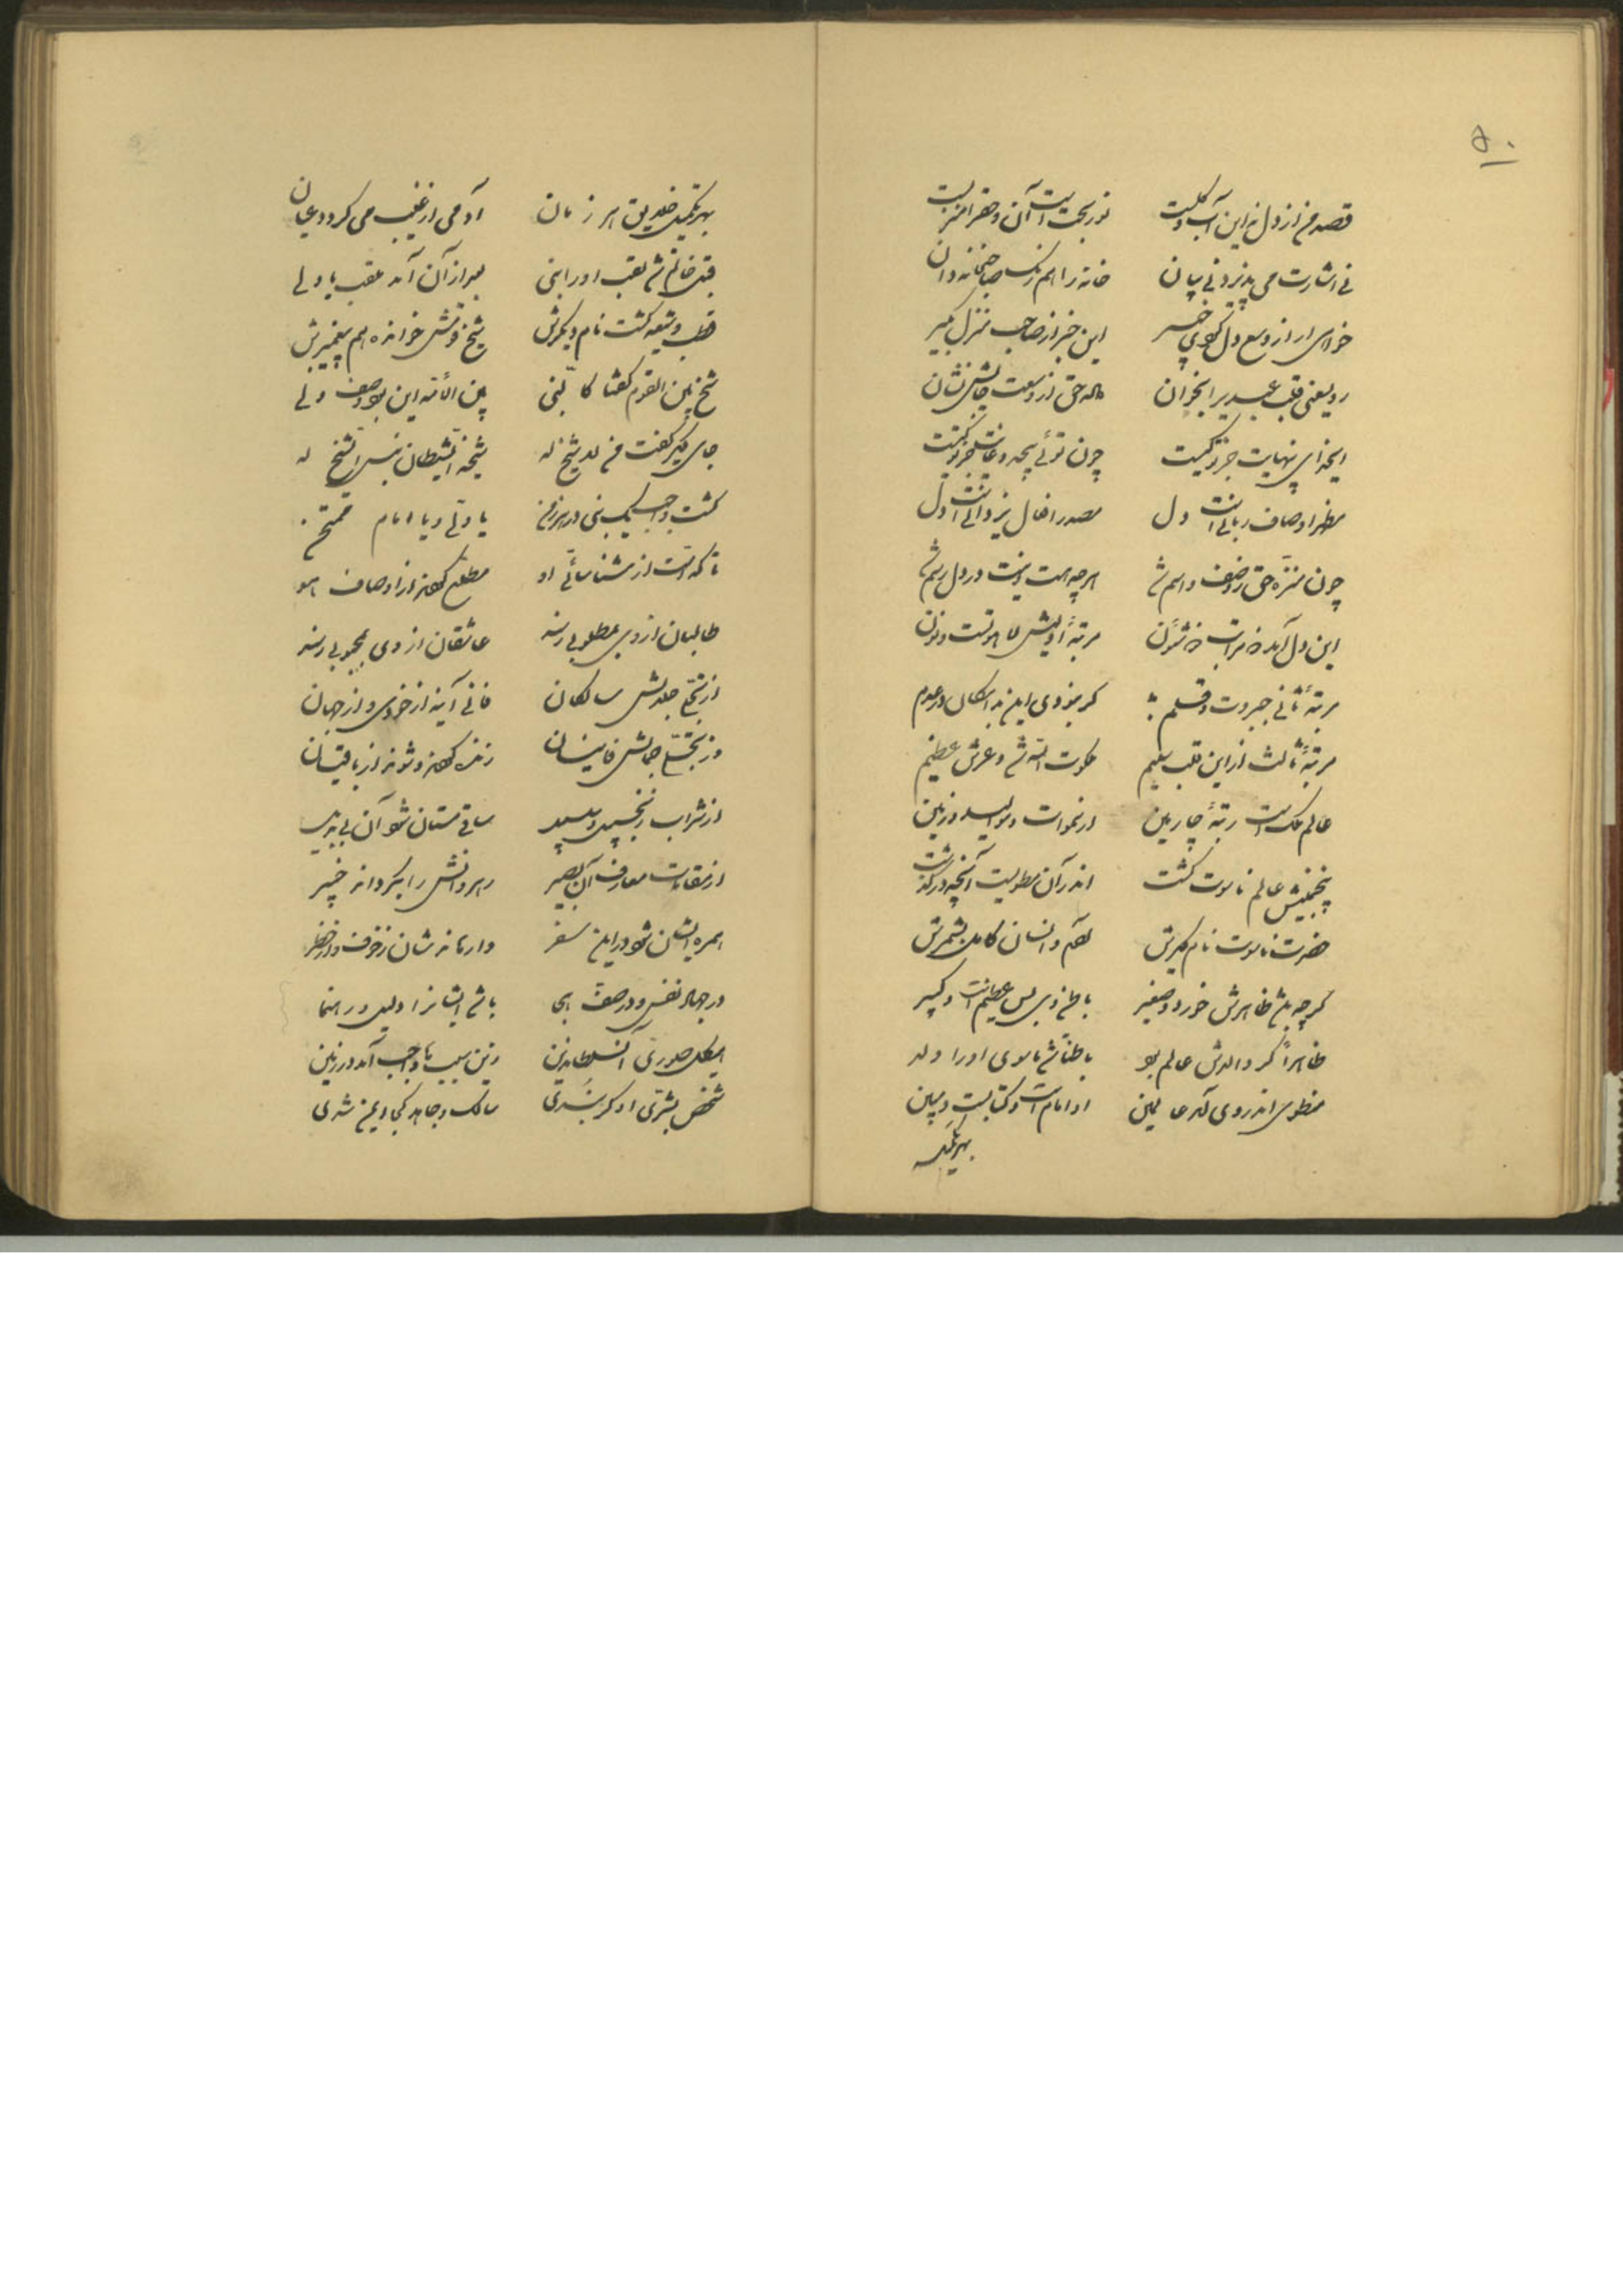 ۵۰
قصد من از دل نه این آب و گلست نور بحت است آن و حق را منزلست
نی اشارت می پذیرد نی بیان خانه را همرنک صاحبخانه دان
خواهی ار از وسع دل کوی خبیر این خبر از صاحب منزل بگیر
رو یسعنی قلب عبد برا بخوان حق از وسعت جایش نشان
ای بی نهایت جز تو کیست چون توئی بیحد و غایت جز تو کیست
مظهر اوصاف ربانی است دل مصدر افعال یزدانی است دل
چون منزه حق ز وصف و اسم شد هرچه هست و نیست در دل رسم شد
این دل آمد مراتب شئون مرتبهٔ اولیش لاهوتست و نون
مرتبهٔ ثانی جبروت و قلم کر نبودی این بد امکان در عدم
مرتبهٔ ثالث از این قلب سلیم ملکوت الله شد و عرش عظیم
عالم ملک است رتبهٔ چارمین از سموات و موالید و زمین
پنجمینش عالم ناسوت کشت اندر آن مطویست آنچه در کذشت
حضرت ناسوت نام دیگرش آدم و انسان کامل بشمرش
کرچه باشد ظاهرش خورد و صغیر باطن وی بس عظیم است و کبیر
ظاهراً کر والدش عالم بود باطناً شد ماسوی او را ولد
منطوی اندر وی آمد عالمین او امام است و کتابیست مبین
بهر تکمیل
بهر تکمیل خلایق هر زمان آدمی از غیب می کردد عیان
قبل خاتم شد لقب او را نبی بعد از آن آمد ملقب با ولی
قطب وشیعه کشت نام دیگرش شیخ وقتش خوانده هم پیغمبرش
شیخ بین القوم کفتا کالنبی بین الامة این بود وصف ولی
جای دیگر کفت من لا شیخ له شیخه الشیطان بئس الشیخ له
کشت واجب نبی در هر زمن یا ولی و یا امام ممتحن
تا که است از شناسائی او مطلع کردند از اوصاف هو
طالبان از وی بمطلوبی رسند عاشقان از وی بمحبوبی رسند
از تجلی جلالش سالکان فانی آیند از خودی و از جهان
وز تجلی جمالش فانیان زنده کردند و شوند از باقیان
از شراب زنجبیل و سلسبیل ساقی مستان شود آن بی بدیل
از مقامات معارف آن بصیر رهروانش را بکرداند خبیر
همره ایشان شود در این سفر وارهاند شان ز خوف و از خطر
در جهاد نفس و در صف هجا باشد ایشانرا دلیل و رهنما
هیکل صوری آن سلطان دین زین سبب واجب آمد در زمین
شخص بشری او کر نبدی سالک و جاهد کجا ایمن شدی